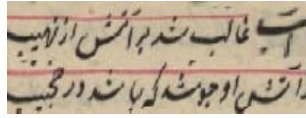 آب غالب شد بر آتش از نهیب
ز آتش او جوشد که باشد در حجیب